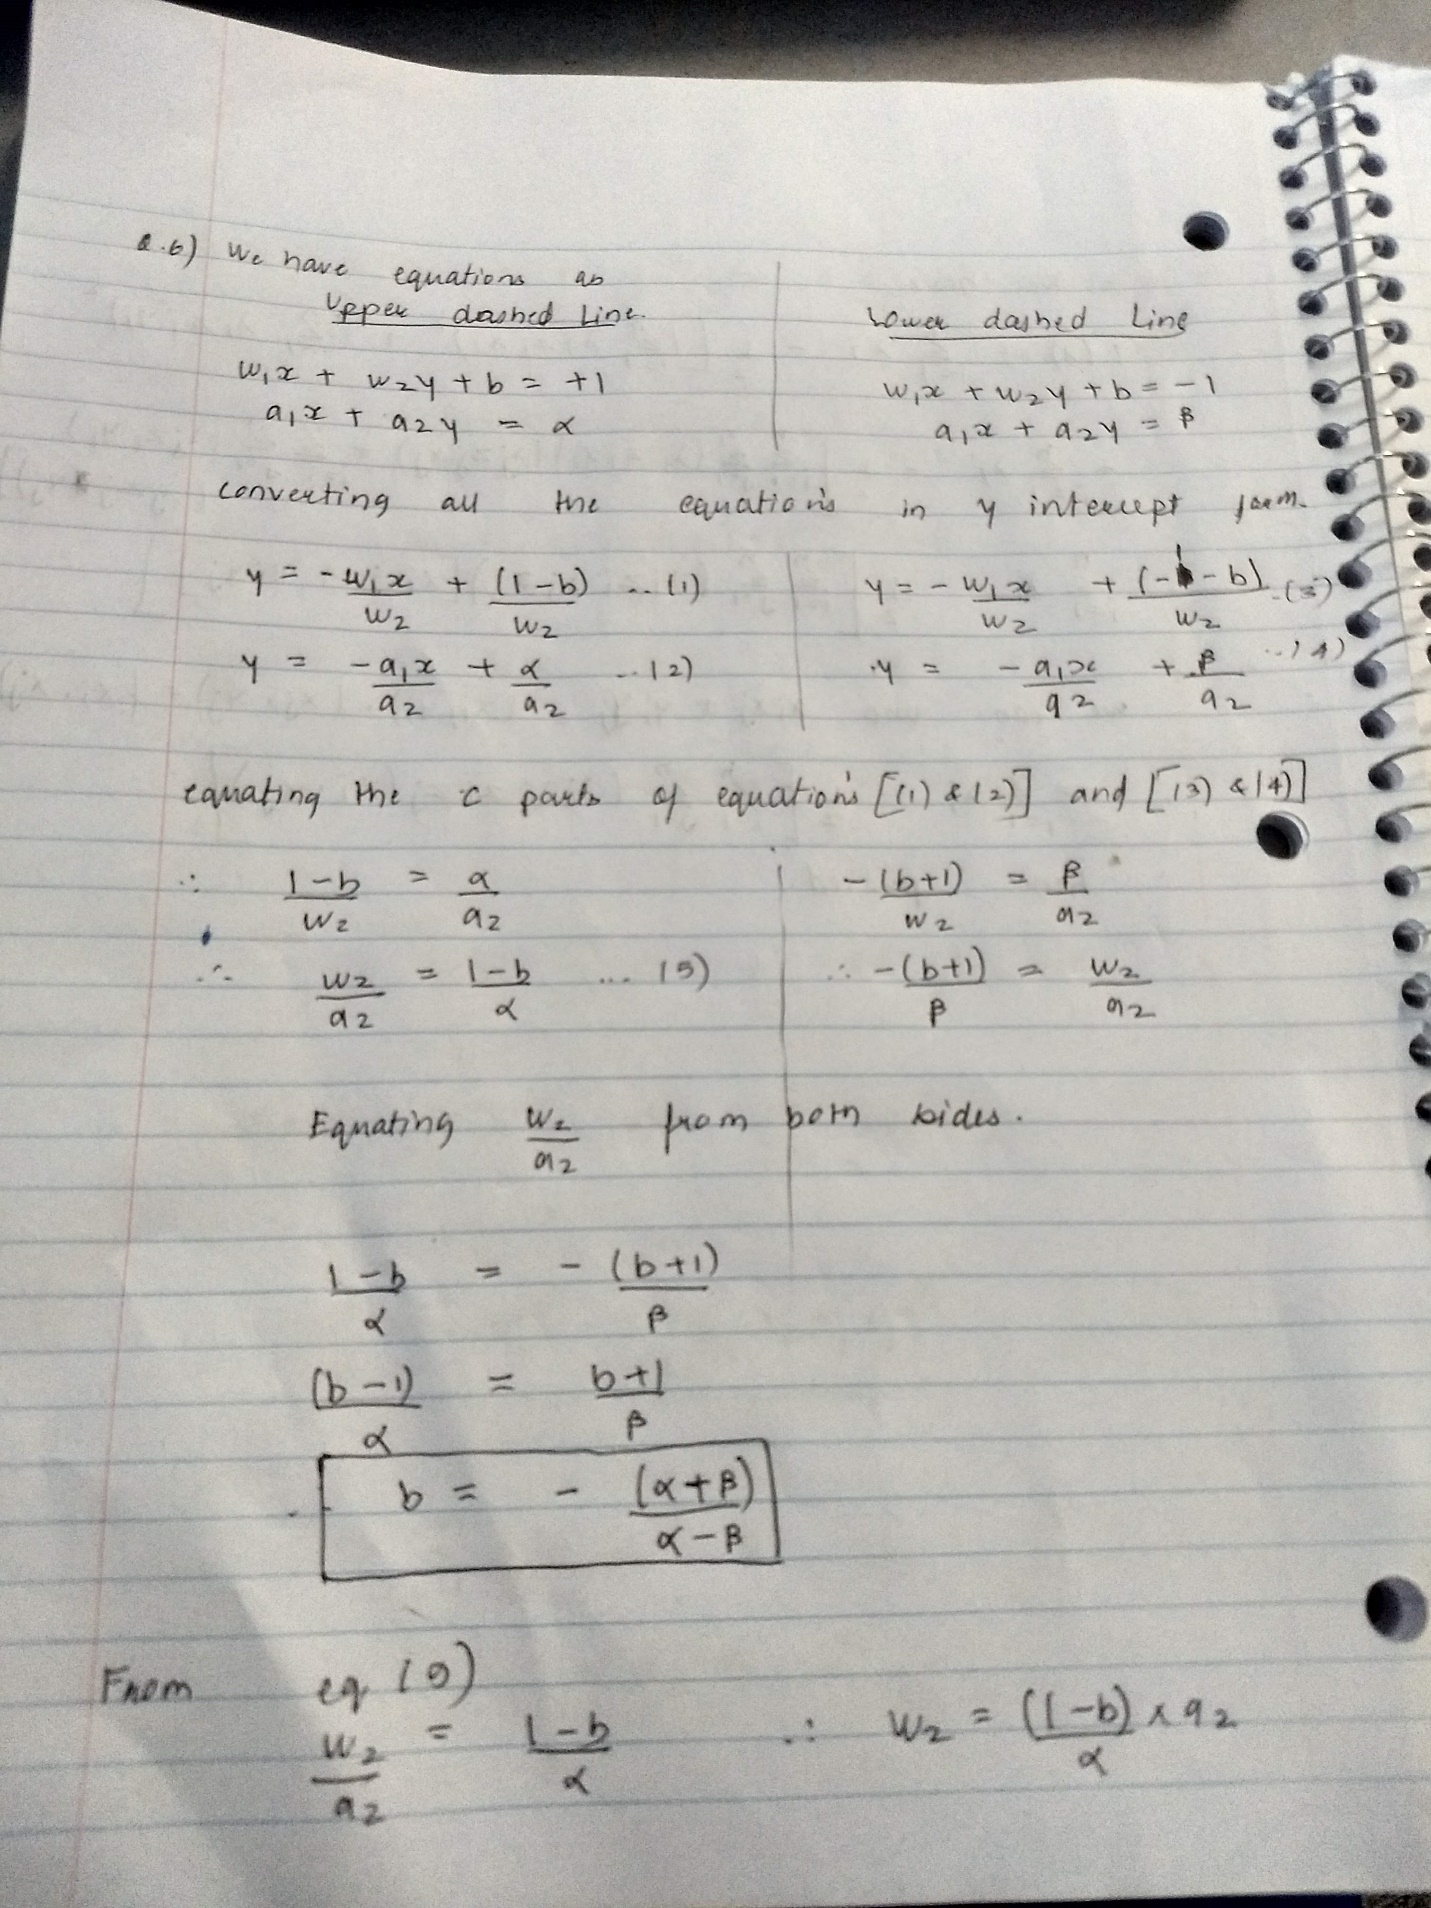 Q.6) We have equations as
Upper dashed Line.
Lower dashed Line
w₁x + w₂y + b = +1
w₁x + w₂y + b = -1
a₁x + a₂y = α
a₁x + a₂y = β
converting all the equations in y intercept form.
y = -w₁x/w₂ + (1-b)/w₂ ... (1)
y = -w₁x/w₂ + (-1-b)/w₂ ..(3)
y = -a₁x/a₂ + α/a₂ ...(2)
y = -a₁x/a₂ + β/a₂ ...(4)
equating the c parts of equations [(1) & (2)] and [(3) & (4)]
∴ (1-b)/w₂ = α/a₂
-(b+1)/w₂ = β/a₂
∴ w₂/a₂ = (1-b)/α ... (5)
∴ -(b+1)/β = w₂/a₂
Equating w₂/a₂ from both sides.
(1-b)/α = -(b+1)/β
(b-1)/α = (b+1)/β
b = -(α+β)/(α-β)
From eq (5)
w₂/a₂ = (1-b)/α ∴ w₂ = (1-b)/α × a₂